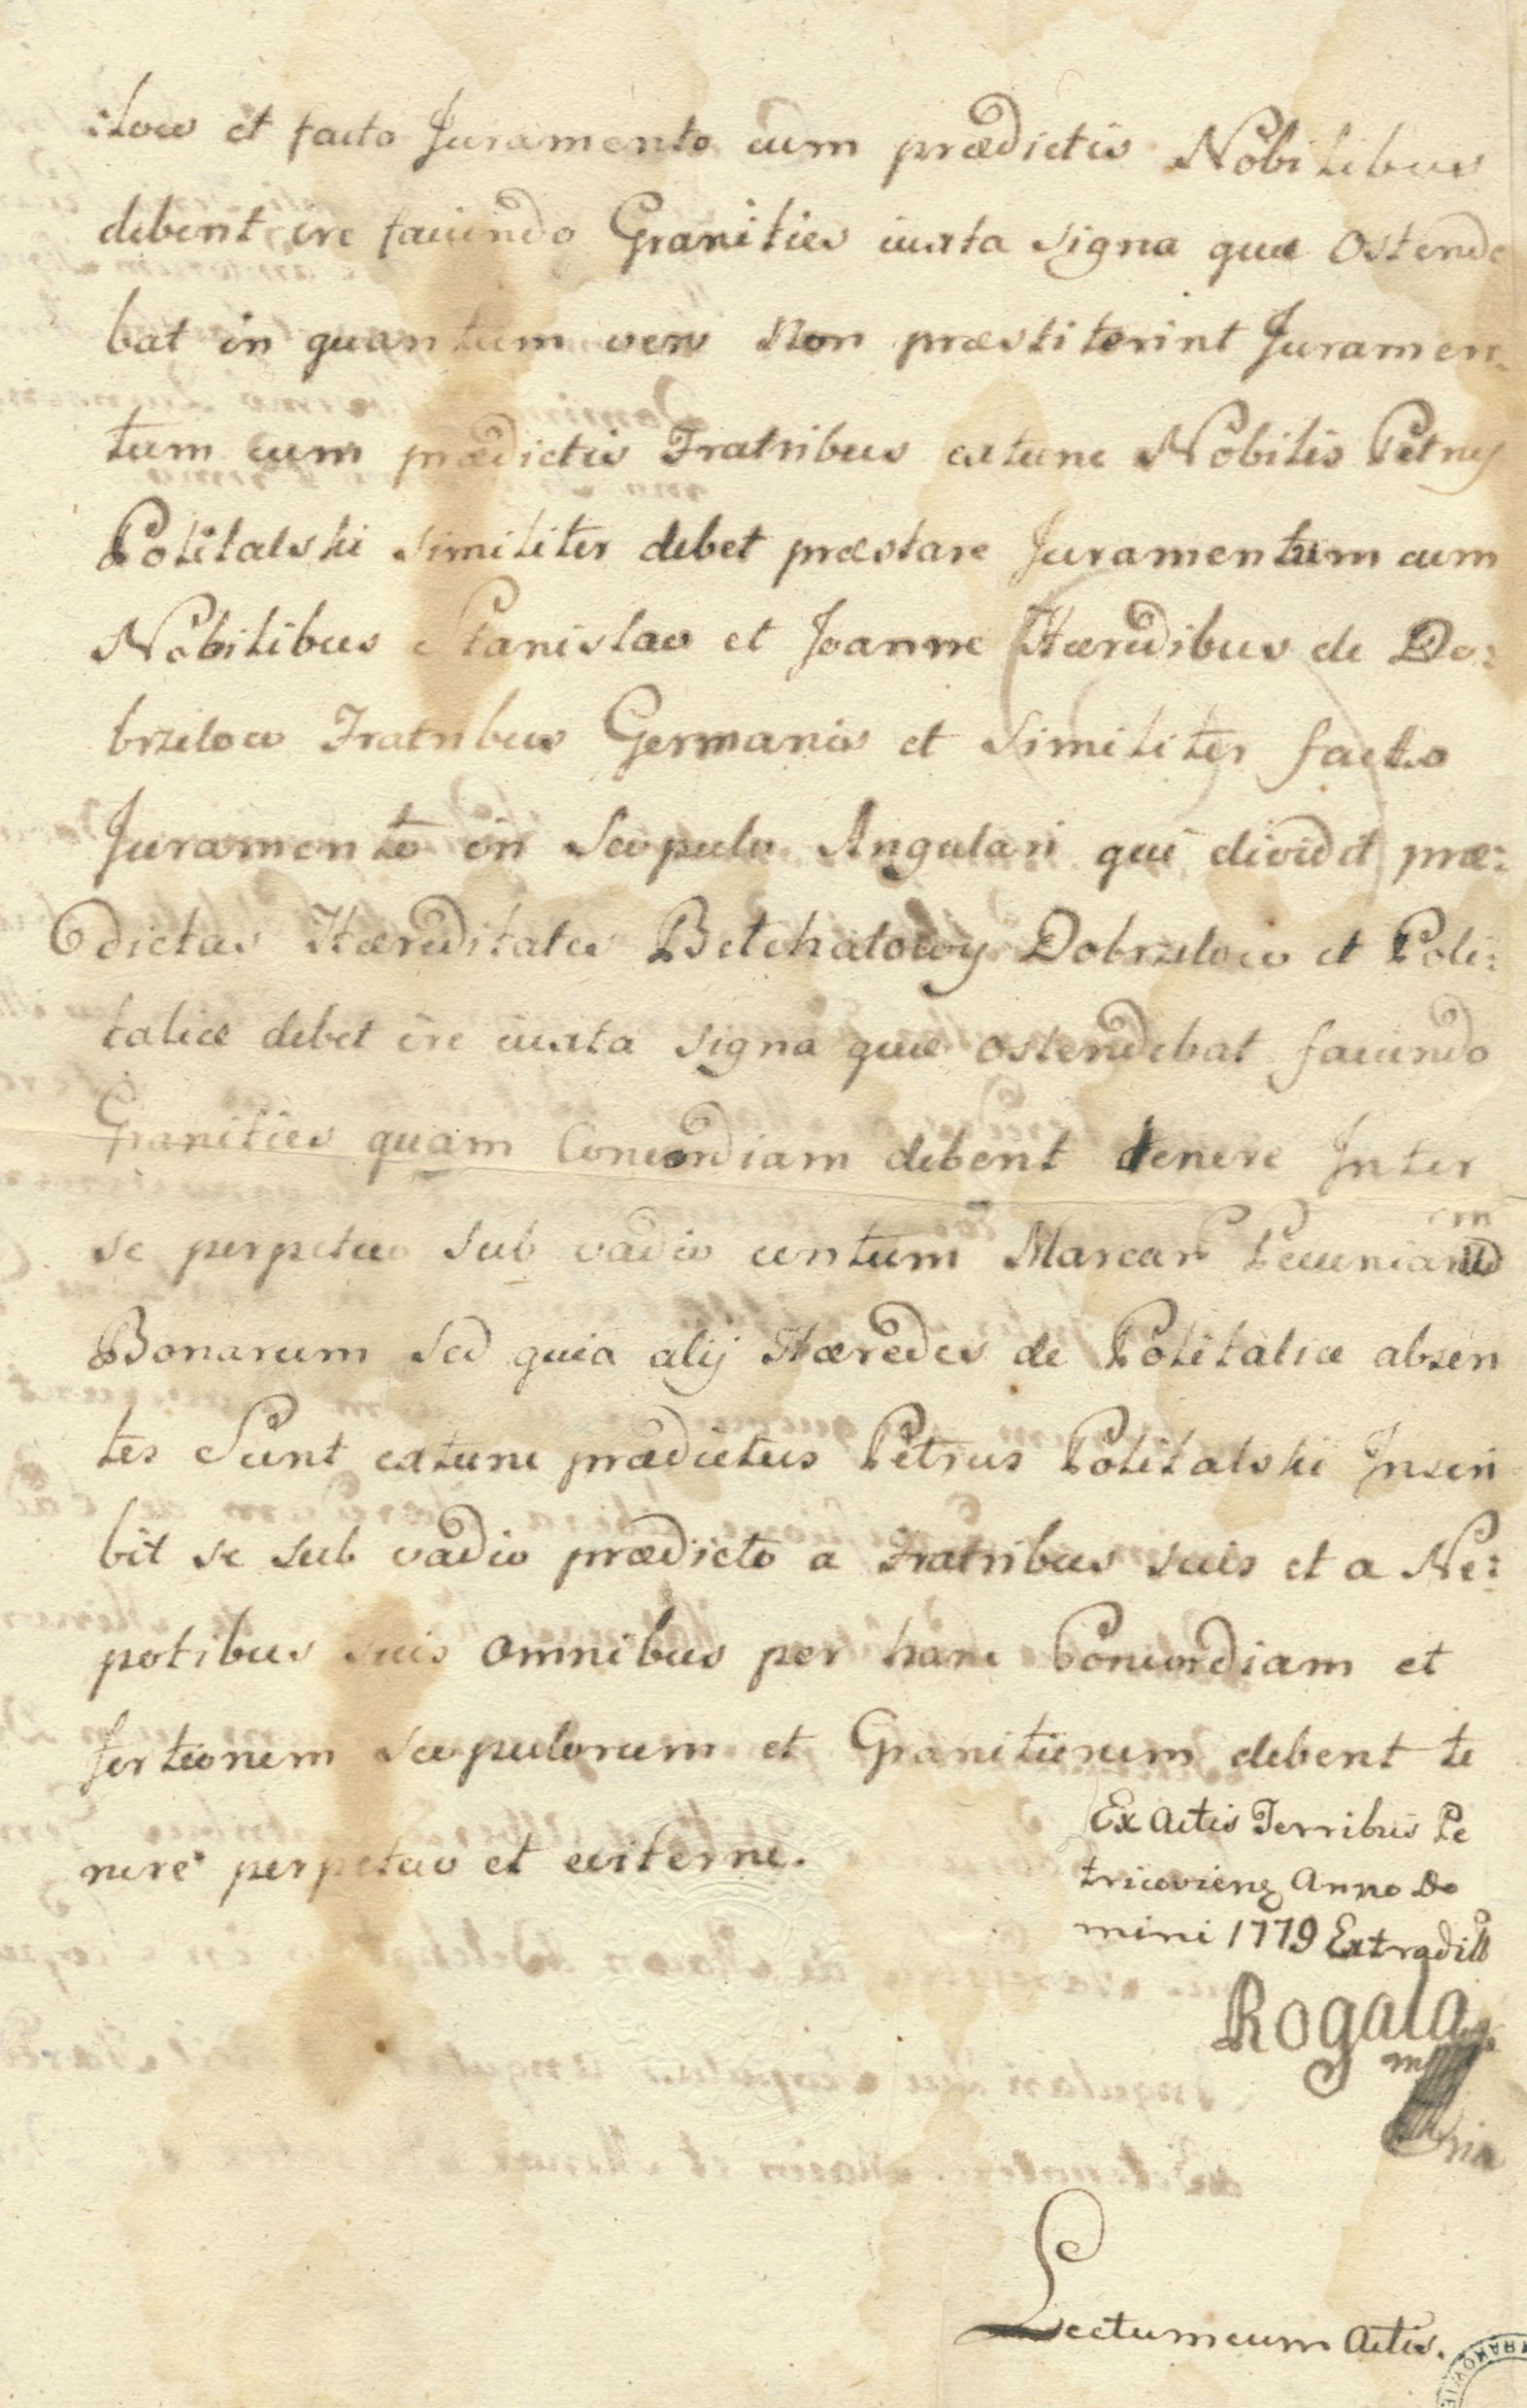 :low et facto Juramento cum prædictis Nobilibus
debent ire faciendo Granities iuxta signa quæ Ostende
bat in quantum vero Non præstiterint Juramen:
tum cum prædictis Fratribus extunc Nobilis Petrus
Politalski similiter debet præstare Juramentum cum
Nobilibus Stanislao et Joanne Hæredibus de Do:
brzelow Fratribus Germanis et Similiter facto
Juramento in Scopulo Angulari qui dividit præ:
dictas Hæreditates Belchatowy Dobrzelow et Poli:
talice debet ire iuxta signa quæ ostendebat faciendo
Granities quam Concordiam debent tenere Inter
se perpetuo sub vadio centum Marcar Pecuniarum
Bonarum sed quia alij Hæredes de Politalice absen
tes Sunt extunc prædictus Petrus Politalski Inscri
bit se sub vadio prædicto a Fratribus suis et a Ne:
potibus suis omnibus per hanc Concordiam et
scopulorum et Granitierum debent te
nere perpetuo et eviterne.
Ex Actis Terribus Pe
tricovien Anno Do
mini 1779 Extradit
Rogala
mp
Lectum cum Actis.